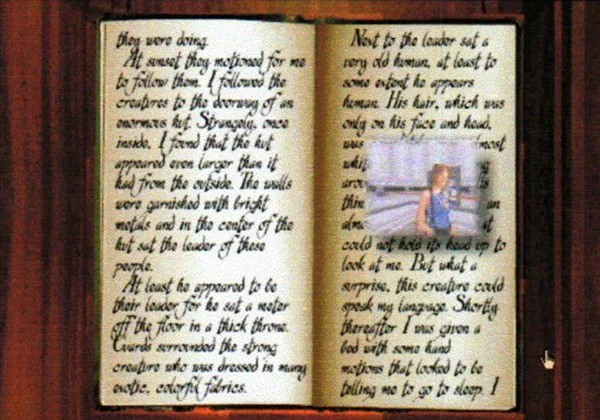 they were doing.
At sunset they motioned for me
to follow them. I followed the
creatures to the doorway of an
enormous hut. Strangely, once
inside, I found that the hut
appeared even larger than it
had from the outside. The walls
were garnished with bright
metals and in the center of the
hut sat the leader of these
people.
At least he appeared to be
their leader for he sat a meter
off the floor in a thick throne.
Guards surrounded the strong
creature who was dressed in many
exotic, colorful fabrics.
Next to the leader sat a
very old human, at least to
some extent he appears
human. His hair, which was
only on his face and head,
was
could not hold its head up to
look at me. But what a
surprise, this creature could
speak my language. Shortly
thereafter I was given a
bed with some hand
motions that looked to be
telling me to go to sleep. I